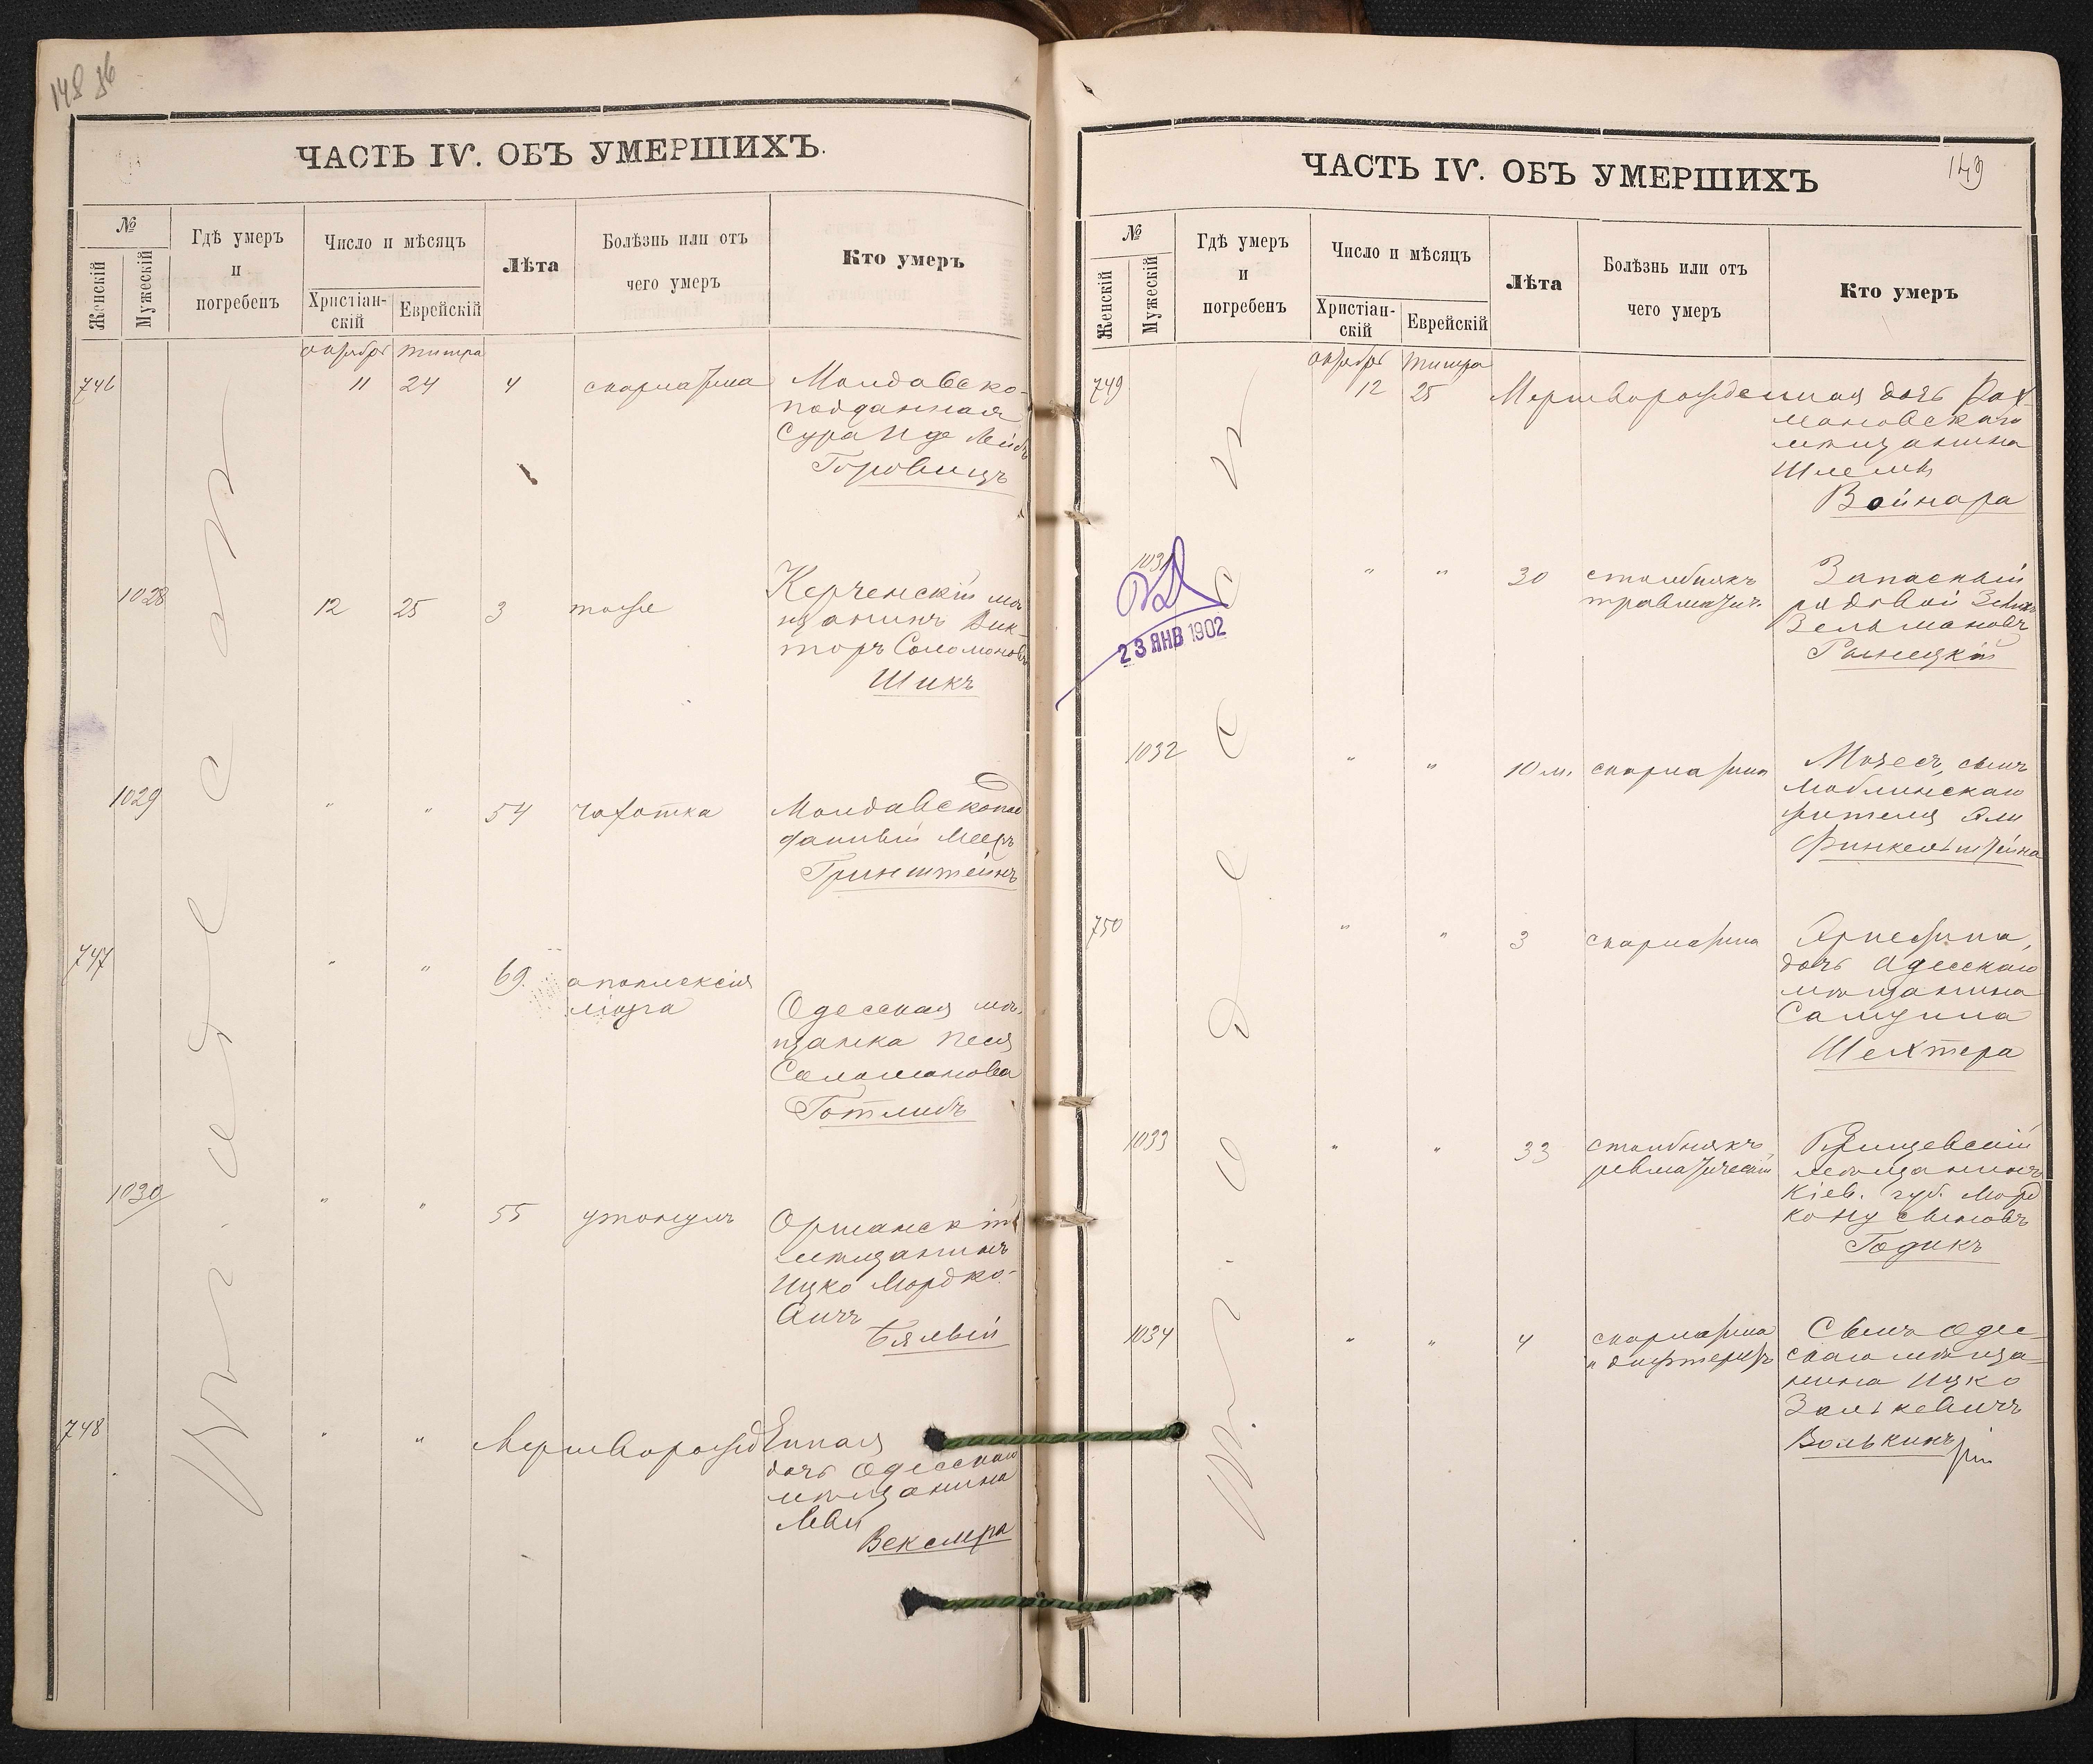 148
ЧАСТЬ IV. ОБЪ УМЕРШИХЪ.
№
Женскій
Мужескій
Гдѣ умеръ
и
погребенъ
Число и мѣсяцъ
Христіан-
скій
Еврейскій
Лѣта
Болѣзнь или отъ
чего умеръ
Кто умеръ
октября тишра
746 11 24 4 скарлатина Молдавско-
подданная
Сура Иде Лейб
Горовицъ
1028 12 25 3 тоже Керченскій мѣ
щанинъ Вик-
торъ Соломоновъ
Шикъ
1029 " " 54 чахотка Молдавскопод
данный Мееръ
Гринштейнъ
747 " " 69 апоплексія
мозга
Одесская мѣ
щанка Песя
Соломонова
Готлибъ
1030 " " 55 утонулъ Оршанскій
мѣщанинъ
Ицко Мордко-
вичъ
Бялый
748 " " Мертворожденная
дочь Одесскаго
мѣщанина
Лейзера
Векслера
149
ЧАСТЬ IV. ОБЪ УМЕРШИХЪ
№
Женскій
Мужескій
Гдѣ умеръ
и
погребенъ
Число и мѣсяцъ
Христіан-
скій
Еврейскій
Лѣта
Болѣзнь или отъ
чего умеръ
Кто умеръ
октября тишра
749 12 25 Мертворожденная дочь Рах-
мановскаго
мѣщанина
Шлемы
Войнара
1031 " " 30 столбнякъ
травматич.
Запасный
рядовой
Зельмановъ
23 ЯНВ 1902
1032 " " 10 м. скарлатина Мозесъ, сынъ
Люблинскаго
жителя
Финкельштейна
750 " " 3 скарлатина Эрнестина,
дочь Одесскаго
мѣщанина
Самуила
Шехтера
1033 " " 33 столбнякъ
ревматическій
мѣщанинъ
Кіев. губ. Мордко
Годикъ
1034 " " 4 скарлатина
и дифтеритъ
Сынъ Одес-
скаго мѣща-
нина Ицко
Залькевичъ
Волькинъ